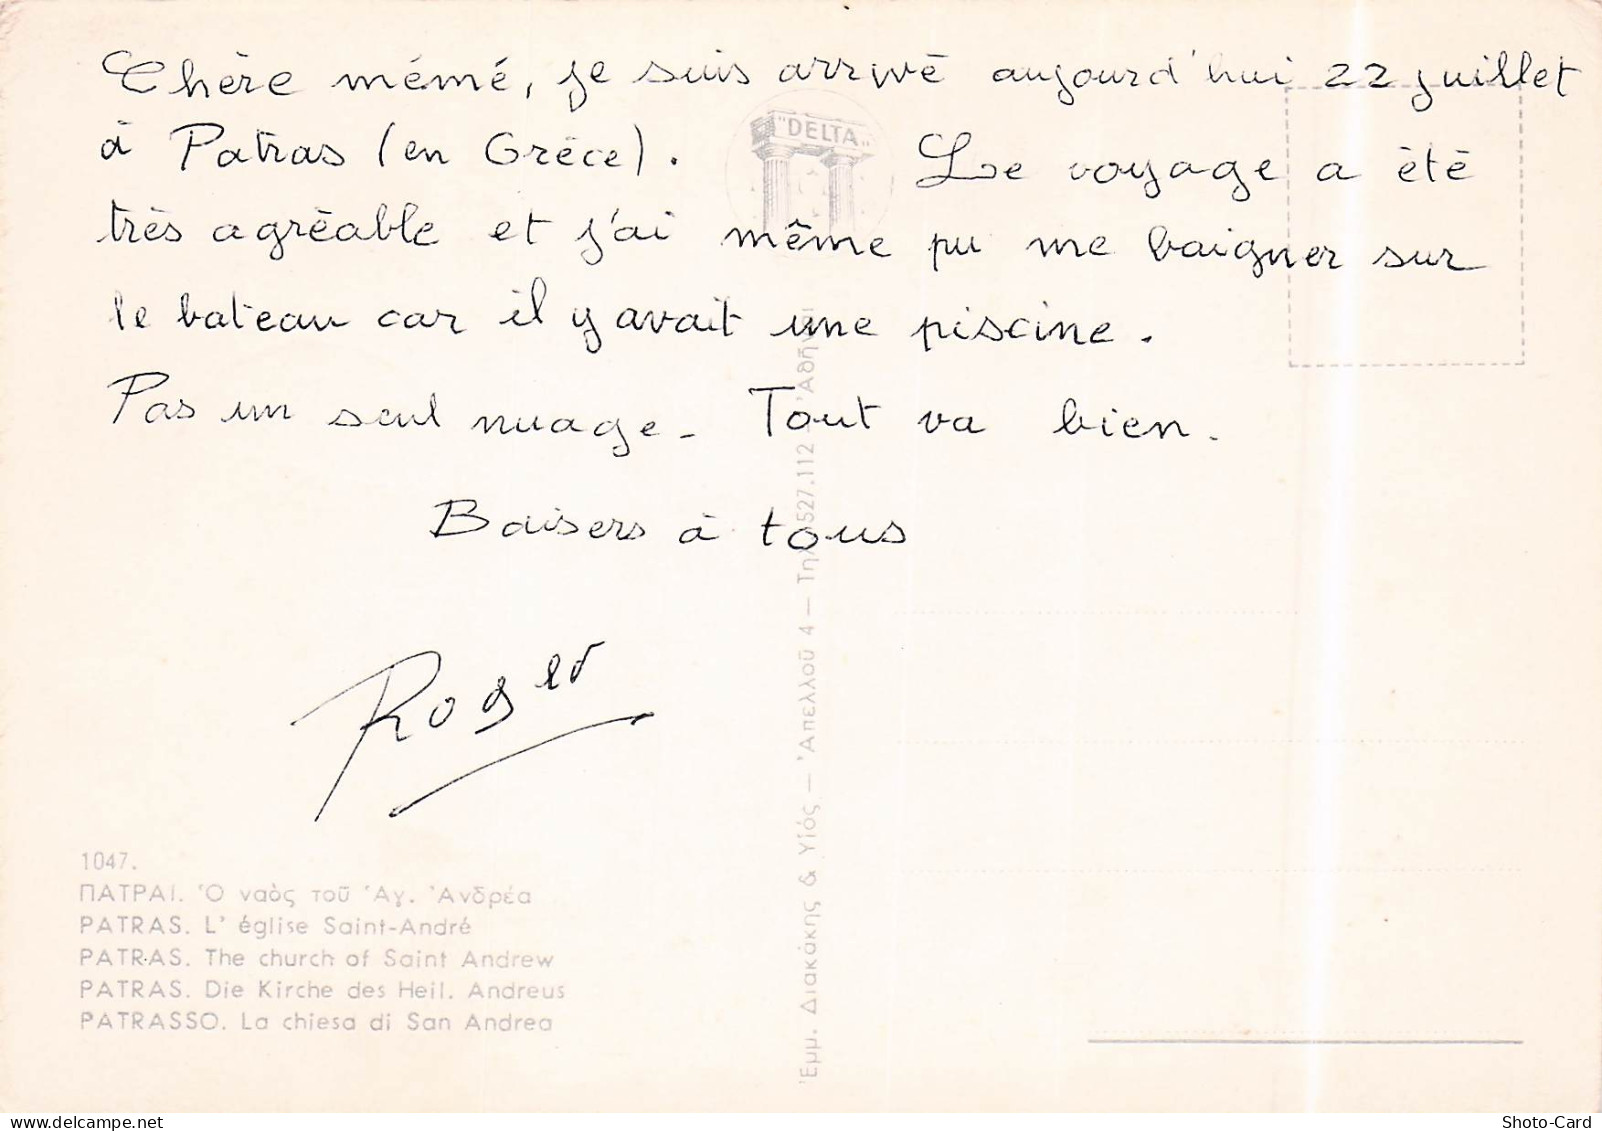 Chère mémé, je suis arrivé aujourd'hui 22 juillet
à Patras (en Grèce). Le voyage a été
très agréable et j'ai même pu me baigner sur
le bateau car il y avait une piscine.
Pas un seul nuage. Tout va bien.
Baisers à tous
Roger
"DELTA"
Ἐμμ. Διακάκης & Υἱός — Ἀπελλοῦ 4 — Τηλ. 527.112 Ἀθῆναι
1047.
ΠΑΤΡΑΙ. Ὁ ναὸς τοῦ Ἁγ. Ἀνδρέα
PATRAS. L' église Saint-André
PATRAS. The church of Saint Andrew
PATRAS. Die Kirche des Heil. Andreus
PATRASSO. La chiesa di San Andrea
delcampe.net
Shoto-Card